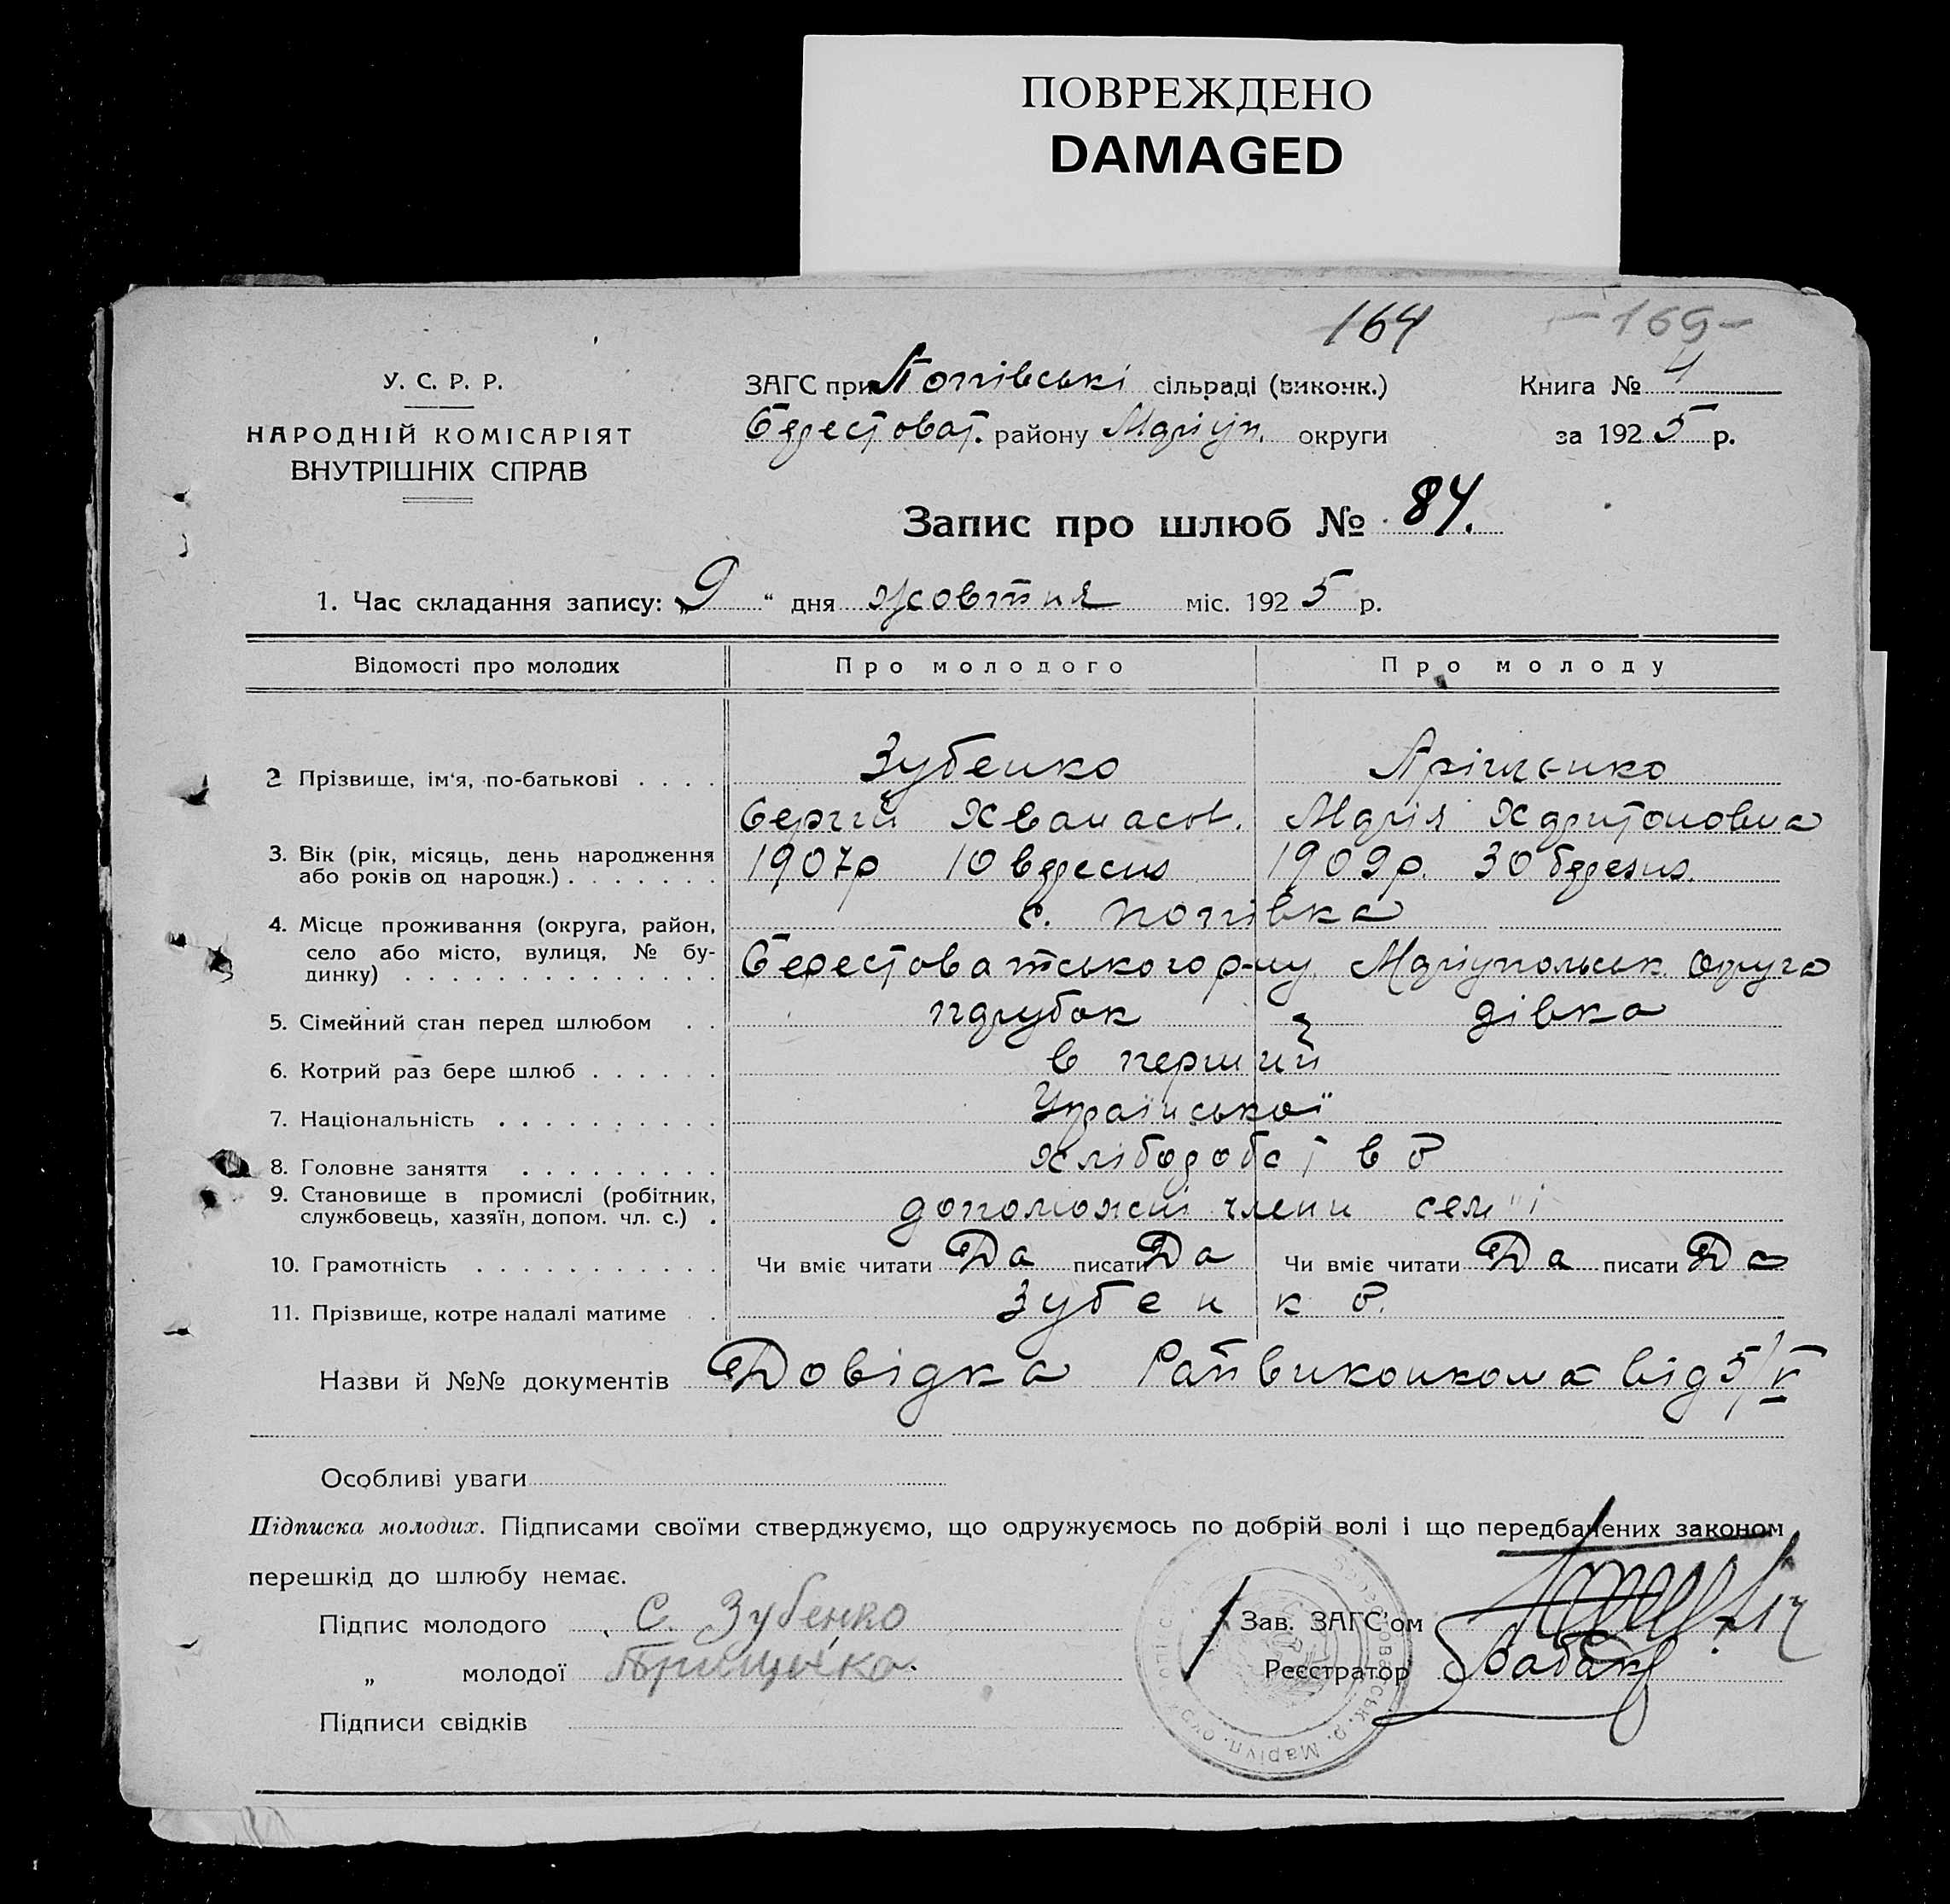 ПОВРЕЖДЕНО
DAMAGED
164
-169-
У. С. Р. Р.
НАРОДНІЙ КОМІСАРІЯТ
ВНУТРІШНІХ СПРАВ
ЗАГС при Попівські сільраді (виконк.)
Берестоват. району Маріуп. округи
Книга № 4
за 1925 р.
Запис про шлюб № 84.
1. Час складання запису: „9" дня жовтня міс. 1925 р.
Відомості про молодих Про молодого Про молоду
2 Прізвище, ім'я, по-батькові . . . . Зубенко
Сергій Хванасов. Марія Харитоновна
3. Вік (рік, місяць, день народження або років од народж.) . . . . . . . 1907р 10 вересня 1909р. 30 березня.
4. Місце проживання (округа, район, село або місто, вулиця, № будинку) . . . . . . . . . . . . . . с. Попівка
Берестоватського р-ну Маріупольськ. Округа
5. Сімейний стан перед шлюбом . . парубок дівка
6. Котрий раз бере шлюб . . . . . . в перший
7. Національність . . . . . . . . . . Української
8. Головне заняття . . . . . . . . . хлібороб
9. Становище в промислі (робітник, службовець, хазяїн, допом. чл. с.) . допоможні члени сем"і
10. Грамотність . . . . . . . . . . . Чи вміє читати Да писати Да Чи вміє читати Да писати Да
11. Прізвище, котре надалі матиме . . Зубенко.
Назви й №№ документів Довідка Райвиконкома від 5/
Особливі уваги
Підписка молодих. Підписами своїми стверджуємо, що одружуємось по добрій волі і що передбачених законом
перешкід до шлюбу немає.
Підпис молодого С. Зубенко
„ молодої
Підписи свідків
Зав. ЗАГС'ом
Реєстратор